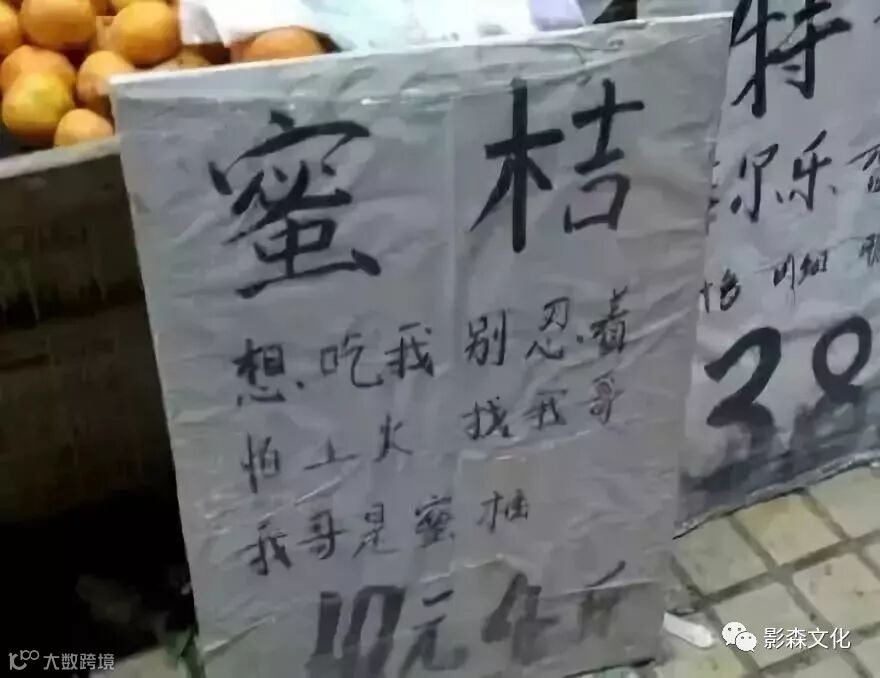 蜜桔
想吃我 别忍着
怕上火 找我哥
我哥是蜜柚
10元4斤
特
尔乐
38
影森文化
大数跨境